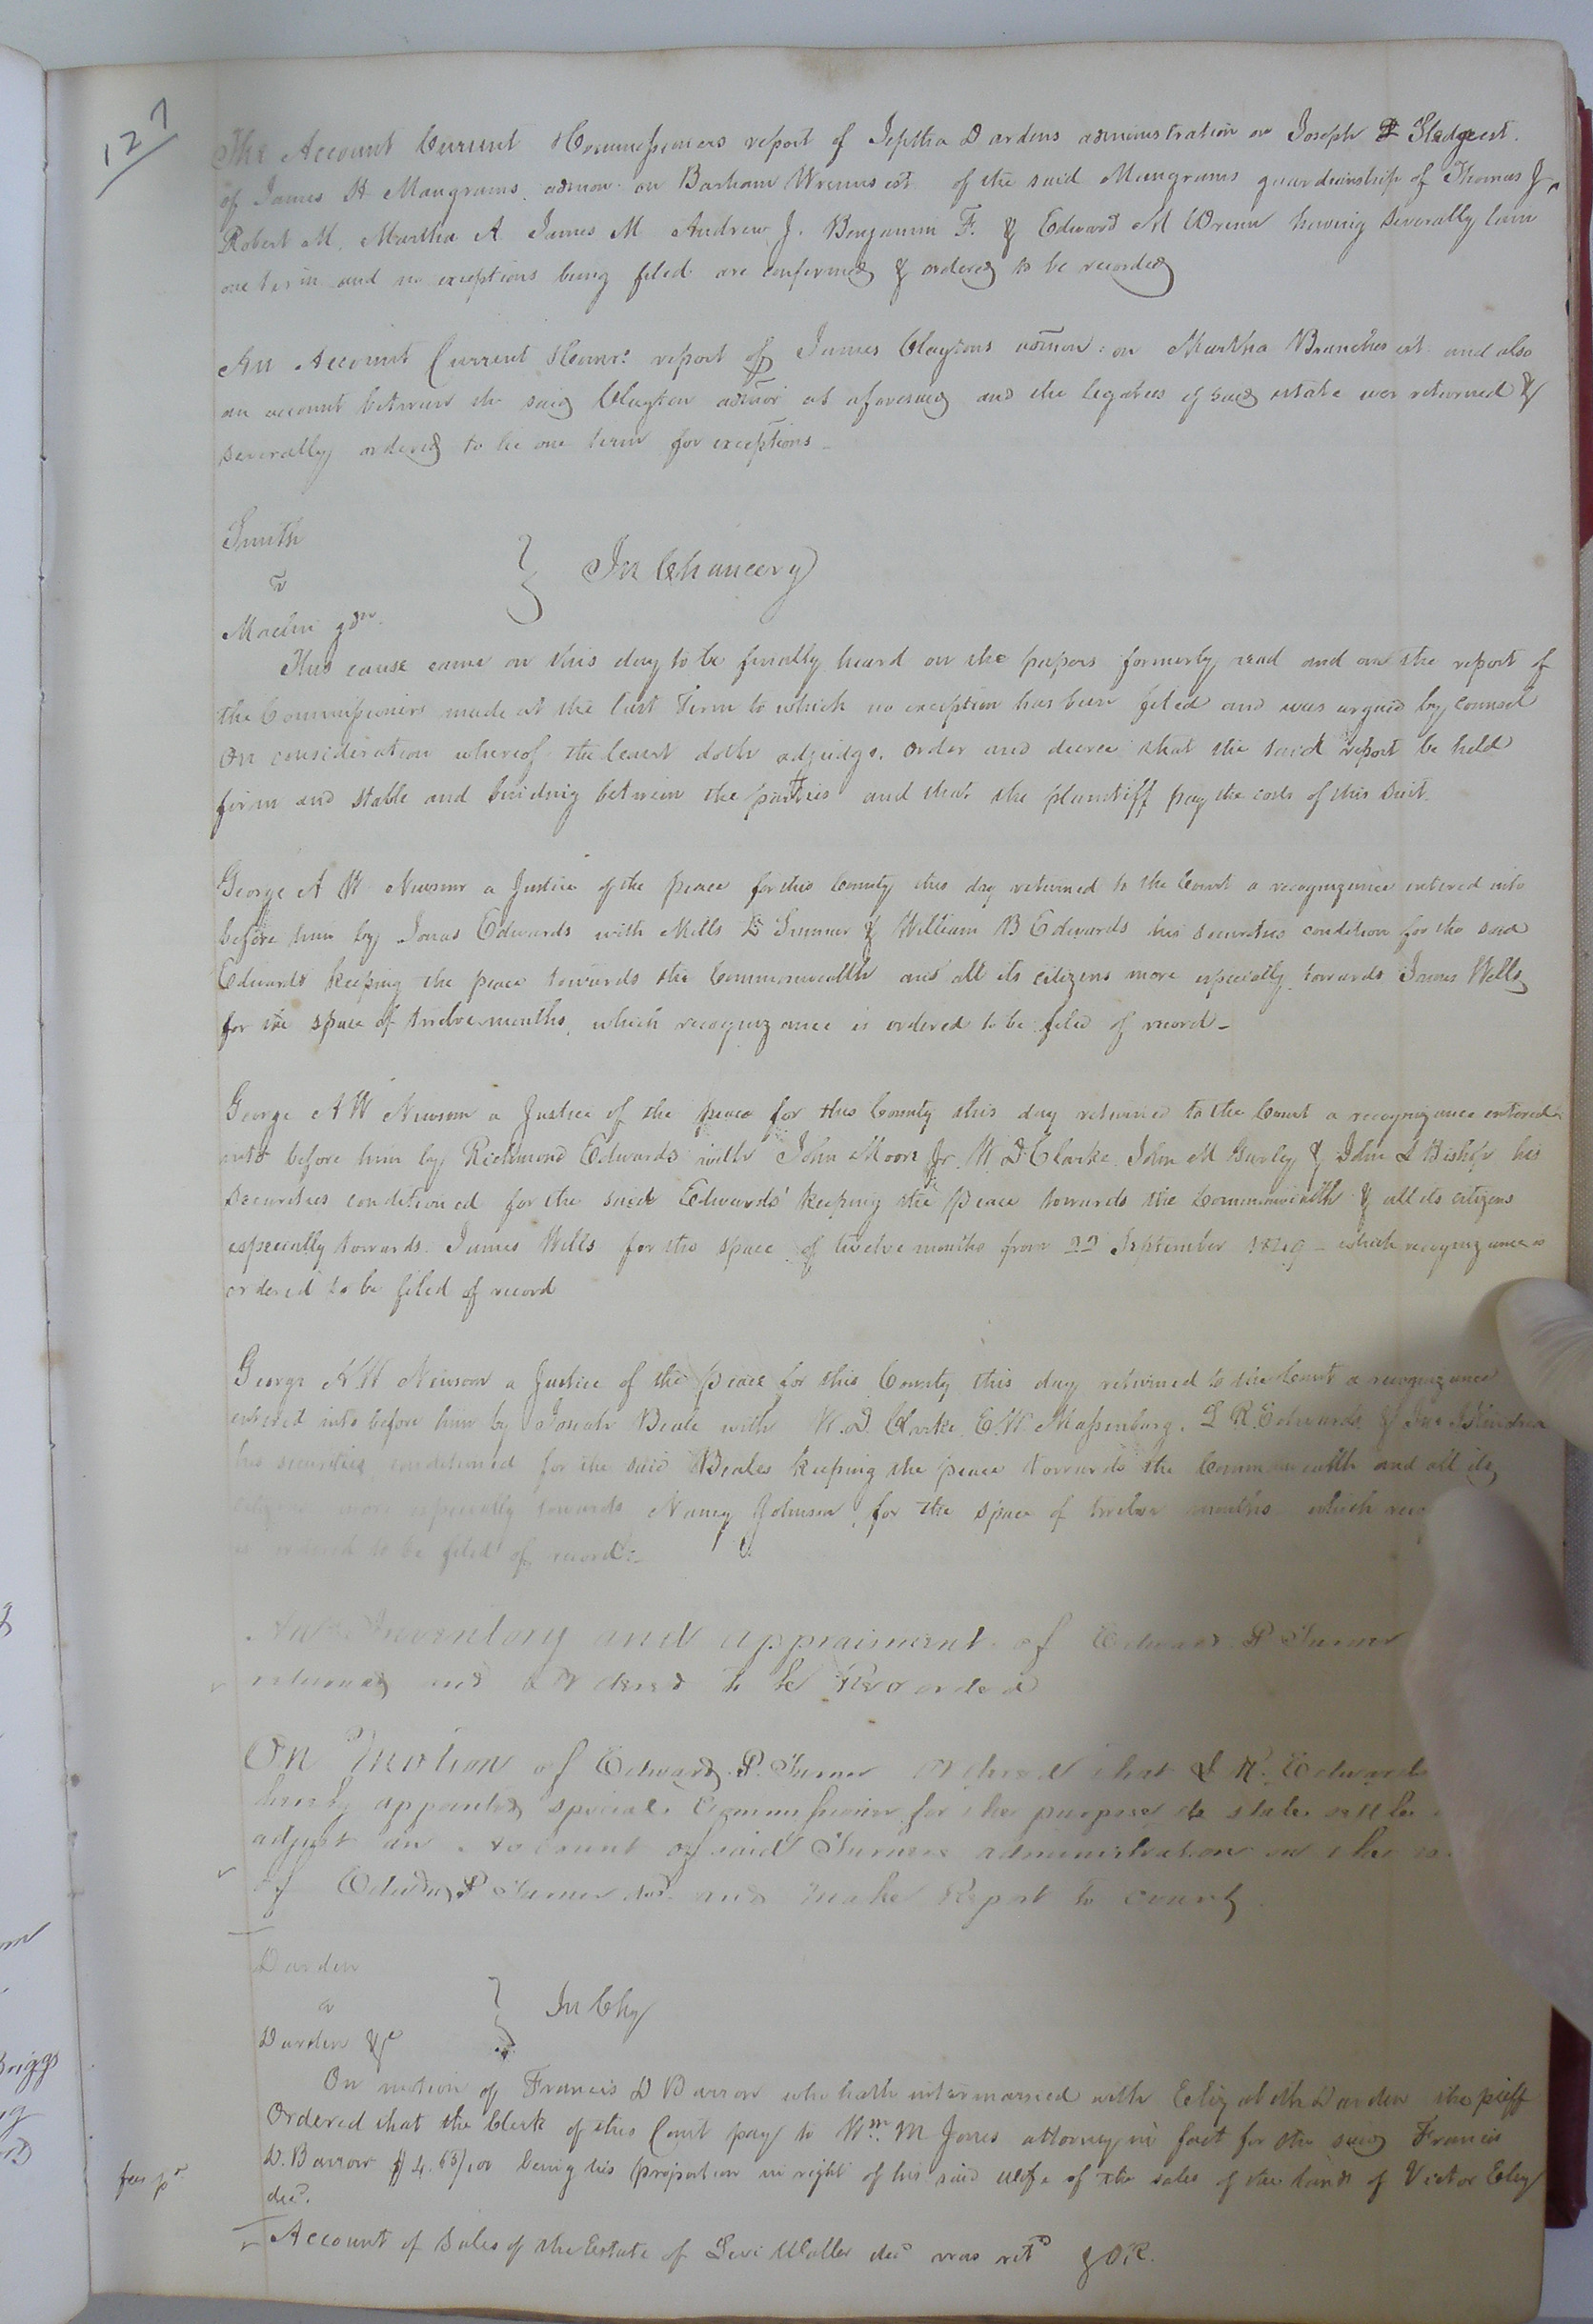 127
The Account Current & Commissioners report of Jeptha Dardens administration on Joseph Sledge est.
of James H Mangrams admon. on Barham Wrenns est of the said Mangrams guardianship of Thomas J.
Robert M. Martha A James M Andrew J. Benjamin F. & Edward M Wrenn having severally lain
one term and no exceptions being filed are confirmed & ordered to be recorded
An Account Current & Comrs. report of James Claytons admon: on Martha Branches est. and also
an account between the said Clayton admor as aforesaid and the legatees of said estate were returned &
severally ordered to lie one term for exceptions
Smith
v
Maclin gdn.
} In Chancery
This cause came on this day to be finally heard on the papers formerly read and on the report of
the Commissioner made at the last Term to which no exception has been filed and was argued by counsel
On consideration whereof the Court doth adjudge, order and decree that the said report be held
firm and stable and binding between the parties and that the plaintiff pay the costs of this suit.
George A W Newsom a Justice of the peace for this County this day returned to the Court a recognizance entered into
before him by Jonas Edwards with Mills Sumner & William B Edwards his securities condition for the said
Edwards keeping the peace towards the Commonwealth and all its citizens more especially towards James Wells
for the space of twelve months, which recognizance is ordered to be filed of record -
George A W Newsom a Justice of the peace for this County this day returned to the Court a recognizance entered
into before him by Richmond Edwards with John Moore Jr. W D Clarke John M Gurley & John L Bishop his
securities conditioned for the said Edwards' keeping the peace towards the Commonwealth & all its citizens
especially towards James Wills for the space of twelve months from 22 September 1849 - which recognizance is
ordered to be filed of record
George A W Newsom a Justice of the peace for this County this day returned to the Court a recognizance
entered into before him by Josiah Beale with W. D. Clarke, E. W. Massenburg, L R. Edwards &
his securities, conditioned for the said Beales keeping the peace towards the Commonwealth and all its
citizens more especially towards Nancy Johnson for the space of twelve months which
is ordered to be filed of record:-
An Inventory and appraisment of Edward P Turner
returned and ordered to be Recorded
On Motion of Edward P. Turner Ordered that L R. Edwards
hereby appointed special Commissioner for the purpose to state settle
adjust an Account of said Turners administration on the
of Edwd P Turner decd. and make Report to court
Darden
v
Darden &c
} In Chy
On motion of Francis D Barrow who hath intermarried with Elizabeth Darden the plff
Ordered that the Clerk of this Court pay to Wm. M Jones attorney in fact for the said Francis
D. Barrow $4.63/100 being his proportion in right of his said wife of the sales of the lands of Victor Eley
fees pd
decd.
Account of Sales of the Estate of Levi Waller decd was retd & OR.